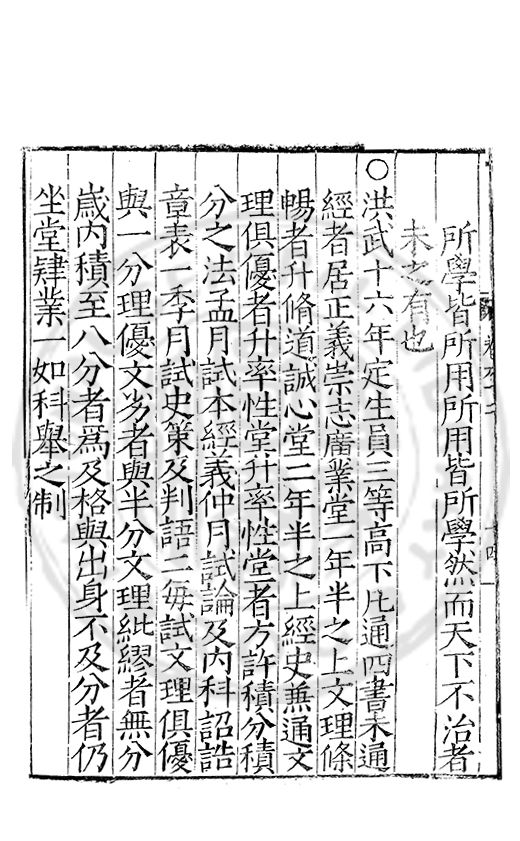 所學皆所用所用皆所學然而天下不治者
未之有也
○洪武十六年定生員三等高下凡通四書未通
經者居正義崇志廣業堂一年半之上文理條
暢者升脩道誠心堂二年半之上經史兼通文
理俱優者升率性堂升率性堂者方許積分積
分之法孟月試本經義仲月試論及內科詔誥
章表一季月試史策及判語二每試文理俱優
與一分理優文劣者與半分文理紕繆者無分
歲內積至八分者爲及格與出身不及分者仍
坐堂肄業一如科舉之制